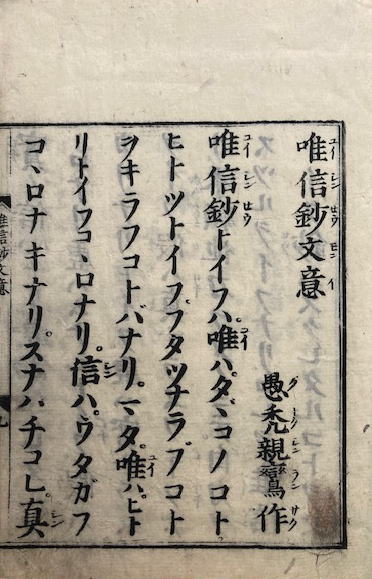 唯信鈔文意
愚禿親鸞作
唯信鈔トイフハ。唯ハタヾコノコト
ヒトツトイフ。フタツナラブコト
ヲキラフコトバナリ。マタ唯ハ。ヒト
リトイフコヽロナリ。信ハ。ウタガフ
コヽロナキナリ。スナハチコレ。真
唯信鈔文意